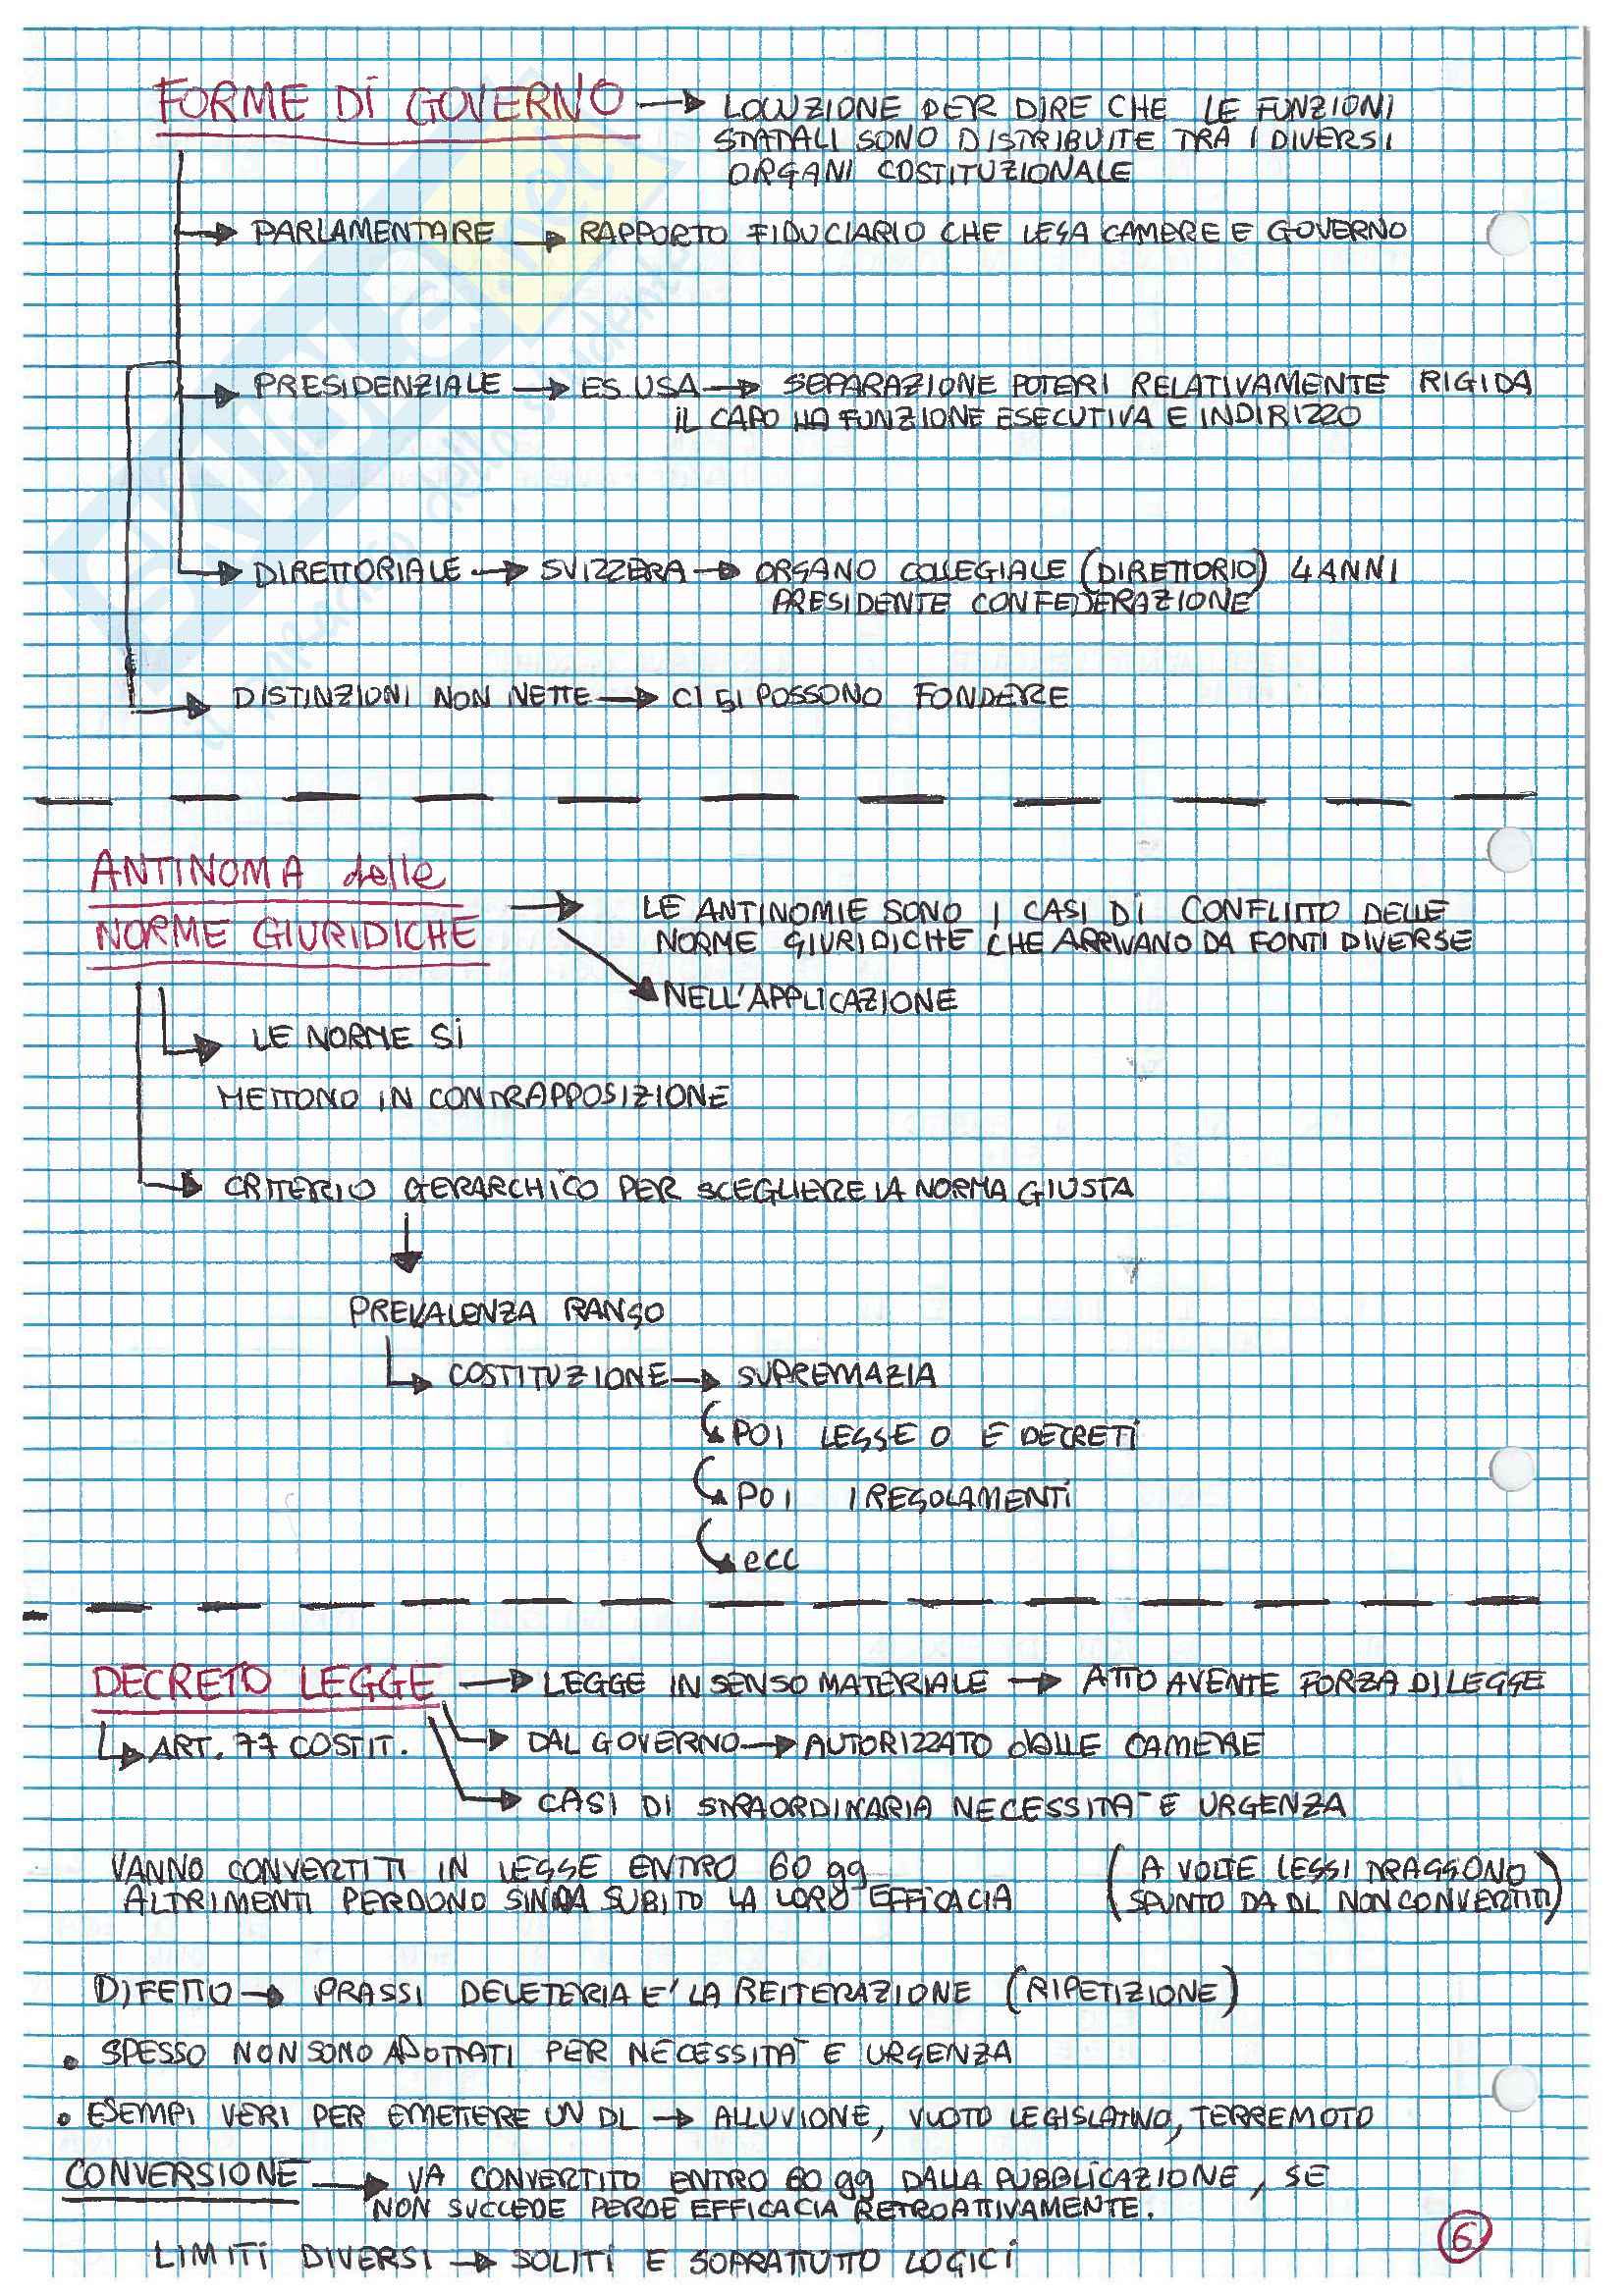 FORME DI GOVERNO → LOCUZIONE PER DIRE CHE LE FUNZIONI
STATALI SONO DISTRIBUITE TRA I DIVERSI
ORGANI COSTITUZIONALE
→ PARLAMENTARE → RAPPORTO FIDUCIARIO CHE LEGA CAMERE E GOVERNO
→ PRESIDENZIALE → ES. USA → SEPARAZIONE POTERI RELATIVAMENTE RIGIDA
IL CAPO HA FUNZIONE ESECUTIVA E INDIRIZZO
→ DIRETTORIALE → SVIZZERA → ORGANO COLLEGIALE (DIRETTORIO) 4 ANNI
PRESIDENTE CONFEDERAZIONE
→ DISTINZIONI NON NETTE → CI SI POSSONO FONDERE
ANTINOMA delle
NORME GIURIDICHE
→ LE ANTINOMIE SONO I CASI DI CONFLITTO DELLE
NORME GIURIDICHE CHE ARRIVANO DA FONTI DIVERSE
→ NELL'APPLICAZIONE
→ LE NORME SI
METTONO IN CONTRAPPOSIZIONE
→ CRITERIO GERARCHICO PER SCEGLIERE LA NORMA GIUSTA
↓
PREVALENZA RANGO
→ COSTITUZIONE → SUPREMAZIA
→ POI LEGGE O E DECRETI
→ POI I REGOLAMENTI
→ ecc
DECRETO LEGGE → LEGGE IN SENSO MATERIALE → ATTO AVENTE FORZA DI LEGGE
→ ART. 77 COSTIT. → DAL GOVERNO → AUTORIZZATO dalle CAMERE
→ CASI DI STRAORDINARIA NECESSITA' E URGENZA
VANNO CONVERTITI IN LEGGE ENTRO 60 gg (A VOLTE LEGGI TRAGGONO
ALTRIMENTI PERDONO SIN DA SUBITO LA LORO EFFICACIA SPUNTO DA DL NON CONVERTITI)
DIFETTO → PRASSI DELETERIA E' LA REITERAZIONE (RIPETIZIONE)
• SPESSO NON SONO ADOTTATI PER NECESSITA' E URGENZA
• ESEMPI VERI PER EMETTERE UN DL → ALLUVIONE, VUOTO LEGISLATIVO, TERREMOTO
CONVERSIONE → VA CONVERTITO ENTRO 60 gg DALLA PUBBLICAZIONE, SE
NON SUCCEDE PERDE EFFICACIA RETROATTIVAMENTE.
LIMITI DIVERSI → SOLITI E SOPRATTUTTO LOGICI
6